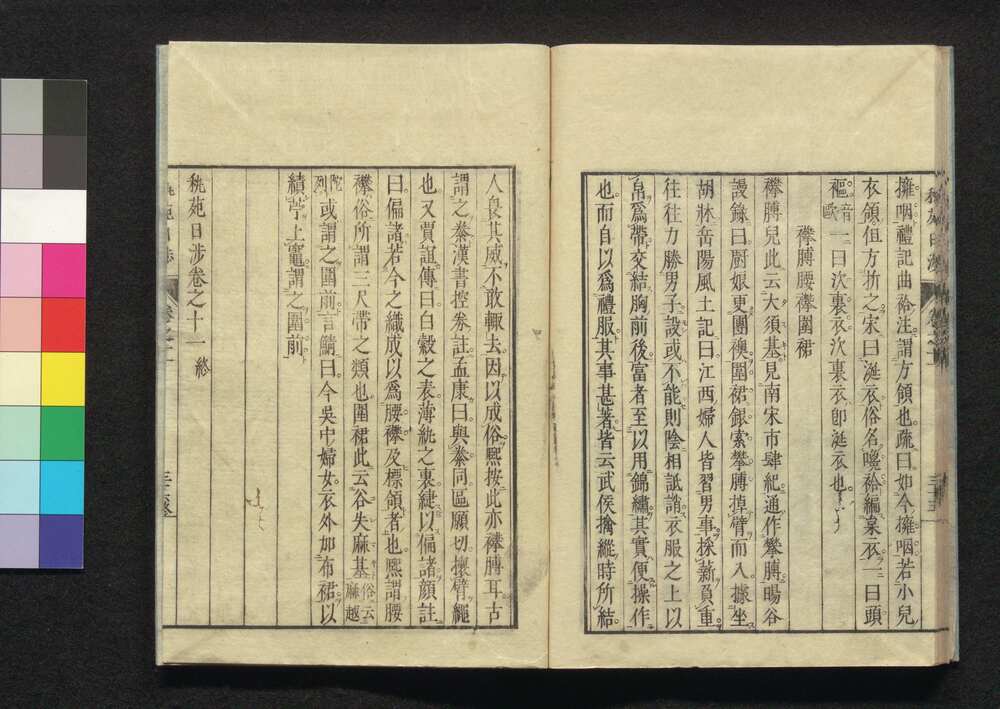 擁咽禮記曲袷注謂方領也疏曰如今擁咽若小兒
衣領但方折之宋曰涎衣俗名唵袷編棄衣一曰頭
裋音歐一曰次裹衣次裹衣卽涎衣也
襻膊腰襻圍裙
襻膊兒此云大須基見南宋市肆紀通作攀膊暘谷
謾錄曰厨娘更團襖圍裙銀索攀膊掉臂而入據坐
胡牀岳陽風土記曰江西婦人皆習男事採薪負重
往往力勝男子設或不能則陰相詆誚衣服之上以
帛爲帶交結胸前後富者至以用錦繡其實便操作
也而自以爲禮服其事甚著皆云武侯擒縱時所結
人畏其威不敢輙去因以成俗熙按此亦襻膊耳古
謂之䋺漢書控䋺註孟康曰與䋺同區願切攘臂繩
也又賈誼傳曰白縠之表薄紈之裏緁以偏諸顔註
曰偏諸若今之織成以爲腰襻及褾領者也熙謂腰
襻俗所謂三尺帶之類也圍裙此云谷失麻基俗云麻越
陀列或謂之圍前言鯖曰今吳中婦女衣外加布裙以
績苧上竈謂之圍前
秇苑日涉卷之十一終